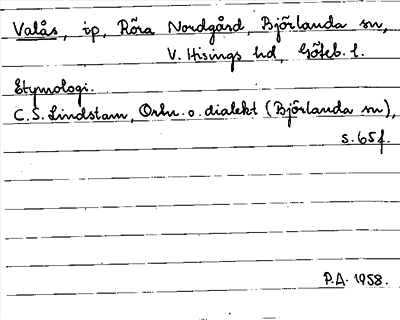 Valås, ip, Röra Nordgård, Björlanda sn,
V. Hisings hd, Göteb. l.
Etymologi.
C. S. Lindstam, Ortn. o. dialekt (Björlanda sn),
s. 65 f.
P.A. 1958.